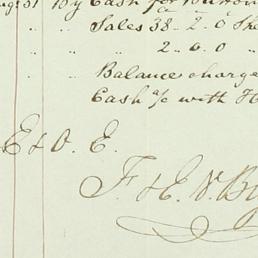 31 " By Cash for
" " Sales 38 - 2. 0
" " 2 .. 6. 0 "
" " Balance charge
Cash a/c with H
E & O. E.
F. & E. V. B